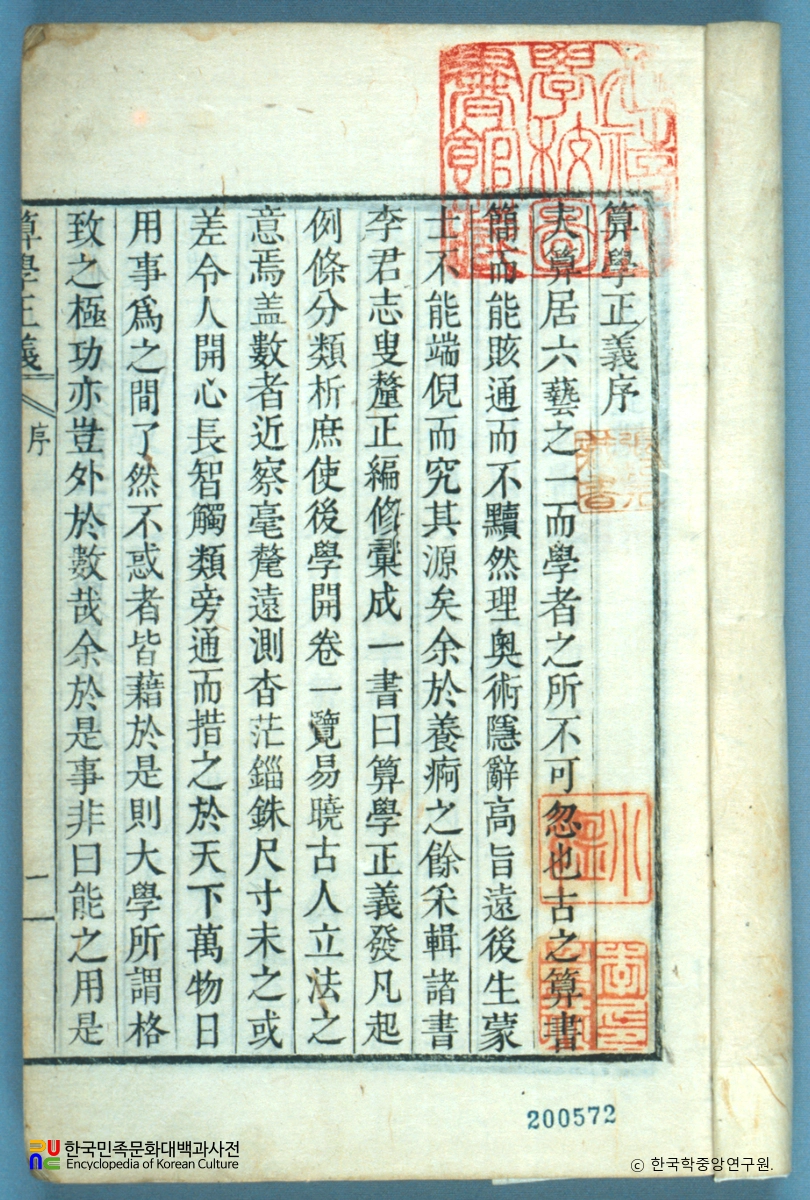 算學正義序
夫算居六藝之一而學者之所不可忽也古之算書
簡而能賅通而不黷然理奧術隱辭高旨遠後生蒙
士不能端倪而究其源矣余於養痾之餘采輯諸書
李君志叟釐正編修彙成一書曰算學正義發凡起
例條分類析庶使後學開卷一覽易曉古人立法之
意焉盖數者近察毫氂遠測杳茫錙銖尺寸未之或
差令人開心長智觸類旁通而措之於天下萬物日
用事爲之間了然不惑者皆藉於是則大學所謂格
致之極功亦豈外於數哉余於是事非曰能之用是
算學正義
序
二
200572
한국민족문화대백과사전
Encyclopedia of Korean Culture
ⓒ 한국학중앙연구원.